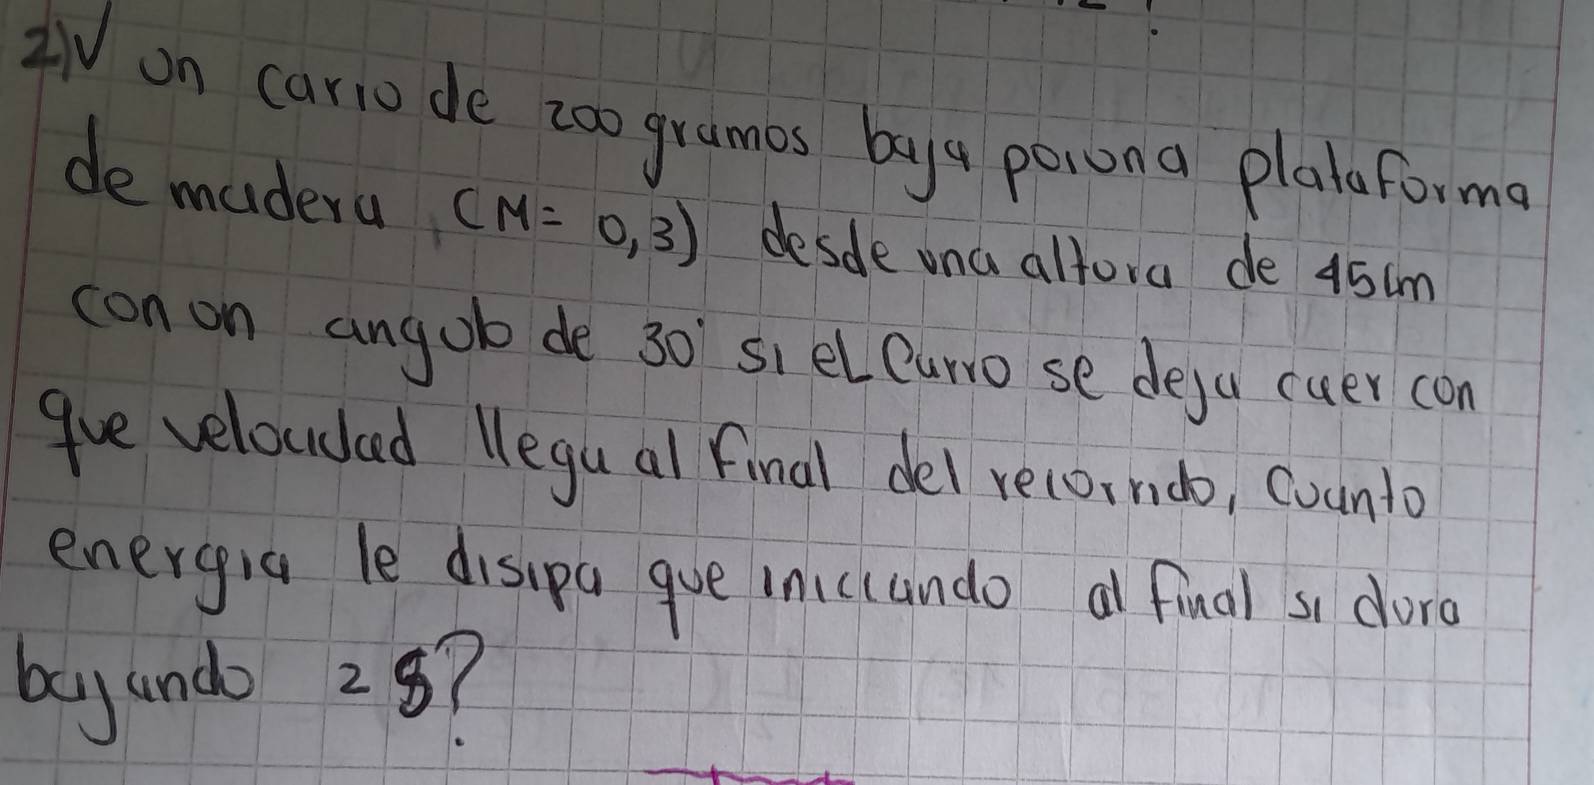 2) Un carro de 200 gramos baja por una plataforma
de madera (M= 0,3) desde una altura de 45cm
con un angulo de 30° si el Carro se deja caer con
que velocidad llega al final del recorrido, Cuanto
energia le disipa que iniciando al final si dura
bajando 2 s?